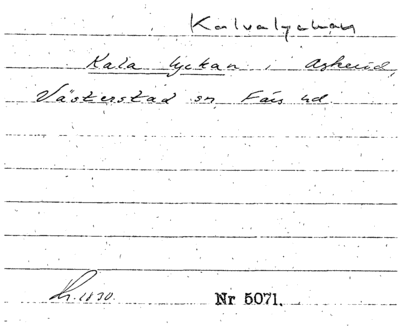 Kalvalyckan
Kala lyckan i Askeröd,
Västerstad sn Färs hd
Nr 5071.